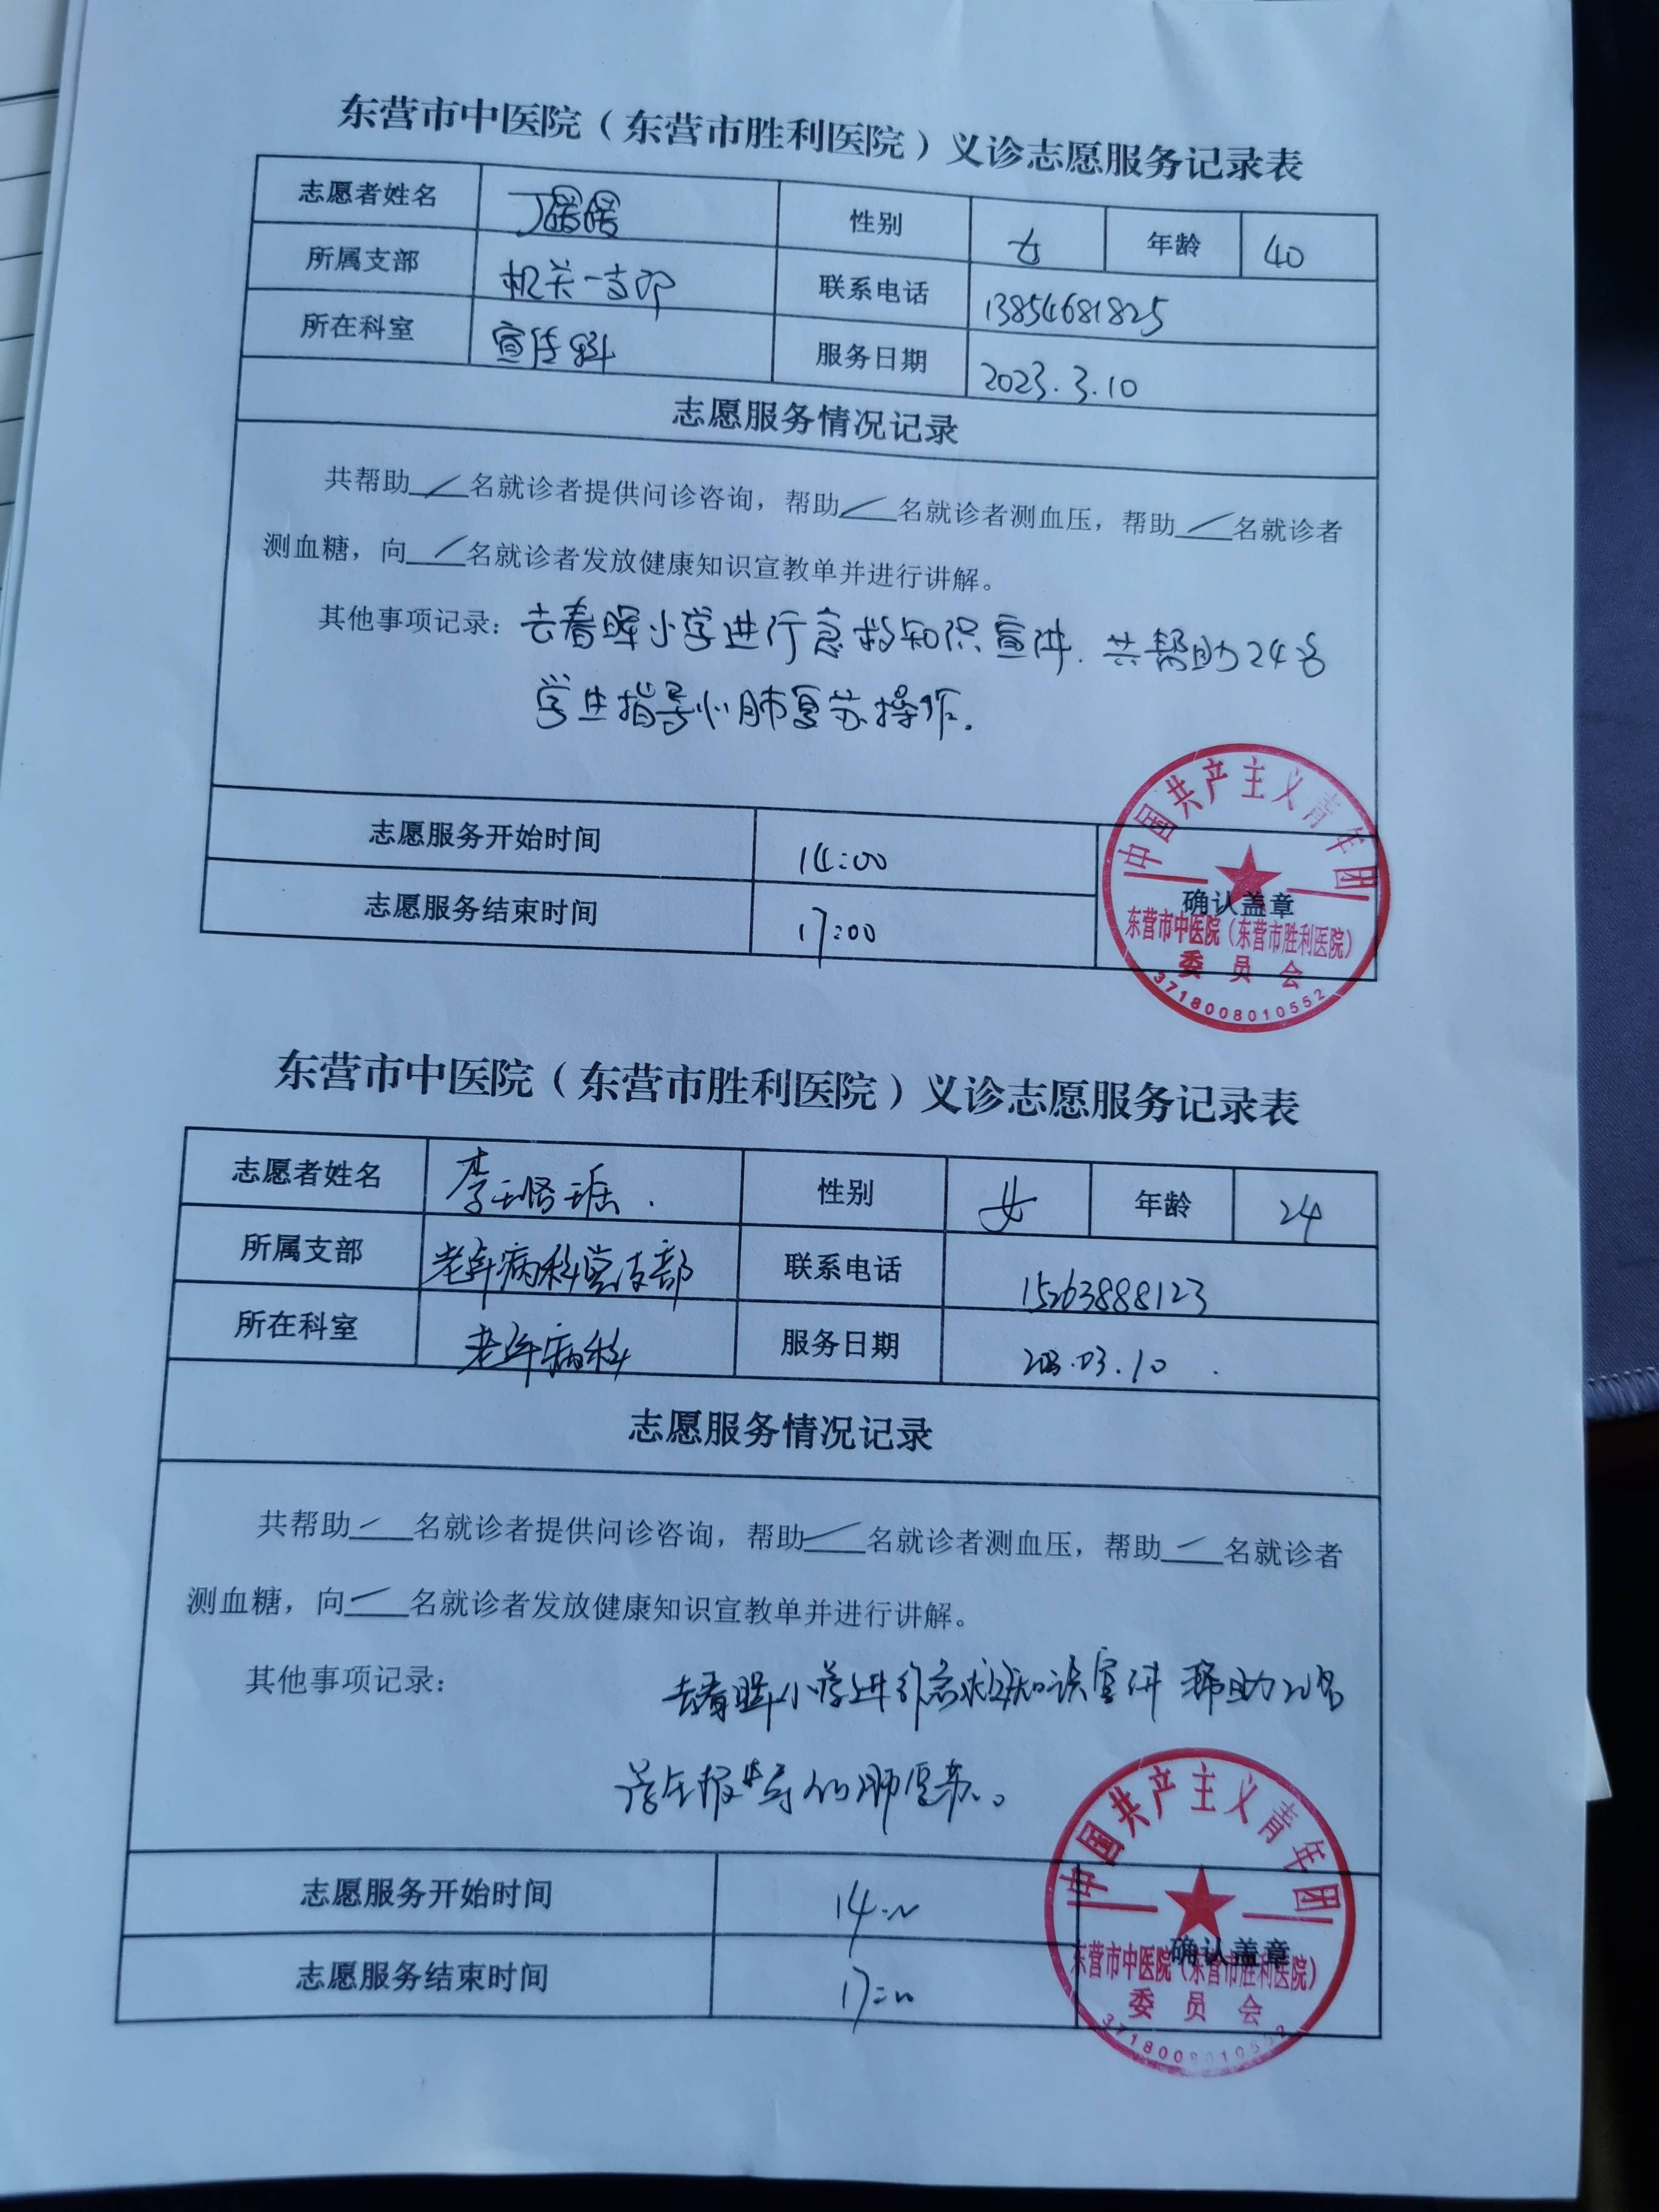 东营市中医院（东营市胜利医院）义诊志愿服务记录表
志愿者姓名 性别 女 年龄 40
所属支部 机关一支部 联系电话 13854681825
所在科室 宣传科 服务日期 2023.3.10
志愿服务情况记录
共帮助 / 名就诊者提供问诊咨询，帮助 / 名就诊者测血压，帮助 / 名就诊者
测血糖，向 / 名就诊者发放健康知识宣教单并进行讲解。
其他事项记录：去春晖小学进行急救知识宣讲.共帮助24名
学生指导心肺复苏操作.
志愿服务开始时间 14:00
志愿服务结束时间 17:00
确认盖章
中国共产主义青年团
东营市中医院（东营市胜利医院）
委员会
3718008010552
东营市中医院（东营市胜利医院）义诊志愿服务记录表
志愿者姓名 李 性别 女 年龄 24
所属支部 老年病科党支部 联系电话 15263888123
所在科室 老年病科 服务日期 2023.03.10
志愿服务情况记录
共帮助 / 名就诊者提供问诊咨询，帮助 / 名就诊者测血压，帮助 / 名就诊者
测血糖，向 / 名就诊者发放健康知识宣教单并进行讲解。
其他事项记录： 去春晖小学进行急救知识宣讲 帮助 名
学生 指导心肺复苏。
志愿服务开始时间 14:00
志愿服务结束时间 17:00
确认盖章
中国共产主义青年团
东营市中医院（东营市胜利医院）
委员会
3718008010552